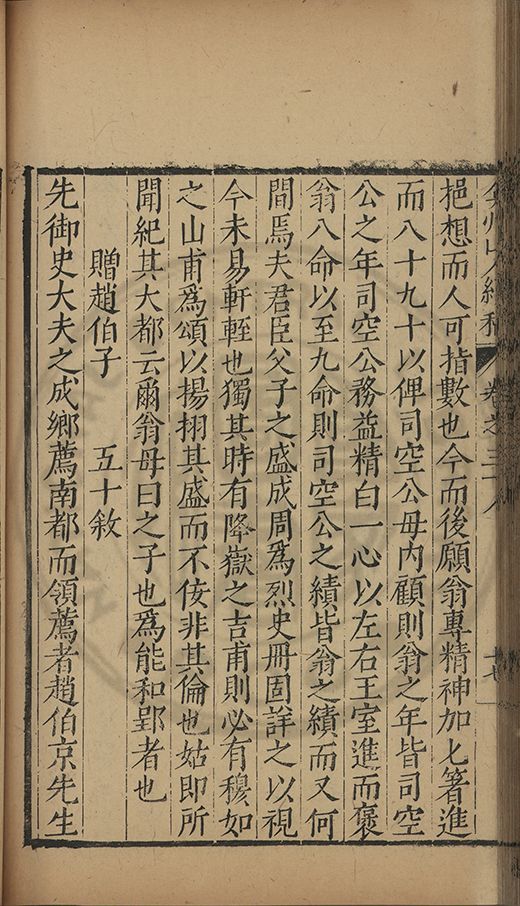 弇州山人續稿 卷之三十八 十七
挹想而人可指數也今而後願翁專精神加匕箸進
而八十九十以俾司空公毋內顧則翁之年皆司空
公之年司空公務益精白一心以左右王室進而褒
翁八命以至九命則司空公之績皆翁之績而又何
間焉夫君臣父子之盛成周為烈史冊固詳之以視
今未易軒輊也獨其時有降嶽之吉甫則必有穆如
之山甫為頌以揚挧其盛而不佞非其倫也姑即所
聞紀其大都云爾翁毋曰之子也為能和郢者也
贈趙伯子 五十敘
先御史大夫之成鄉薦南都而領薦者趙伯京先生